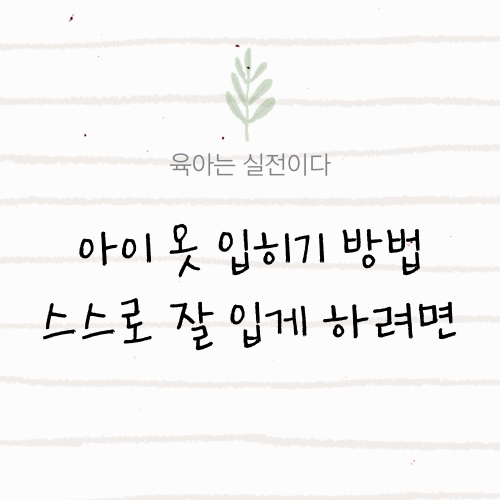 육아는 실전이다
아이 옷 입히기 방법
스스로 잘 입게 하려면